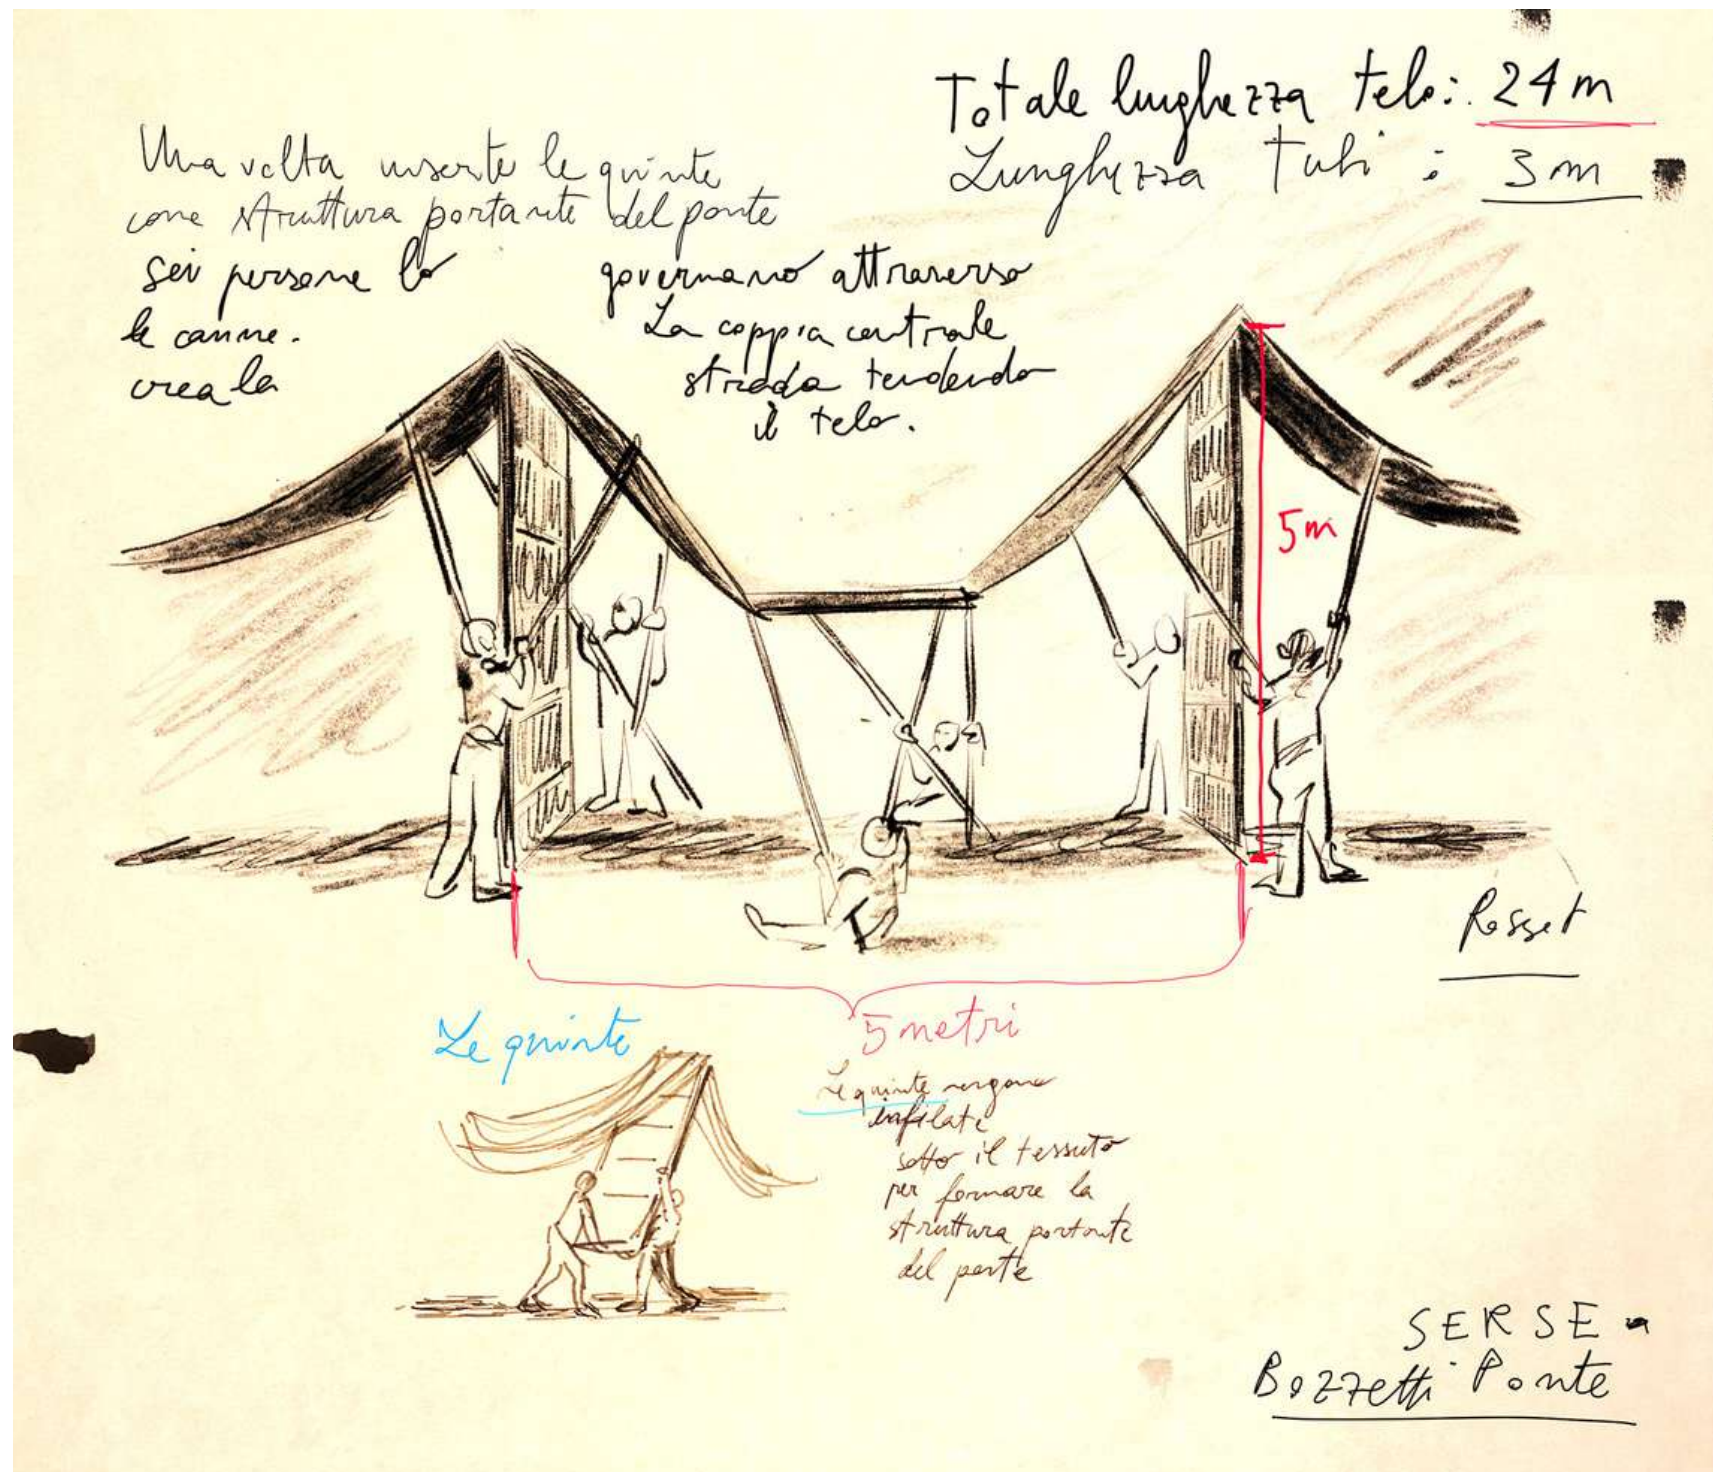 Totale lunghezza telo: 24 m
Lunghezza Tubi : 3 m
Una volta inserite le quinte
come struttura portante del ponte
sei persone lo governano attraverso
le canne. La coppia centrale
crea la strada tendendo
il telo.
5m
Rosset
Le quinte
5 metri
Le quinte vengono
infilate
sotto il tessuto
per formare la
struttura portante
del ponte
SERSE
Bozzetti Ponte